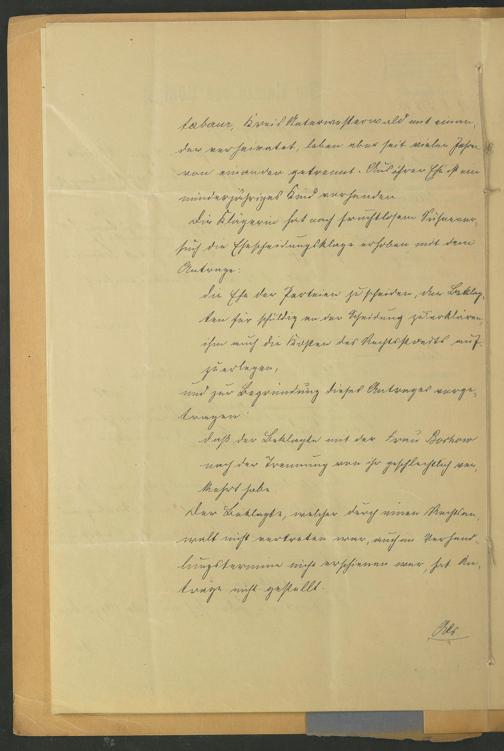 tabaur, Kreis Unterwesterwald mit einan„
der verheiratet, leben aber seit vielen Jahren
von einander getrennt. Aus ihrer Ehe ist ein
minderjähriges Kind vorhanden
Die Klägerin hat nach fruchtlosem Sühnever„
such die Ehescheidungsklage erhoben mit dem
Antrage:
die Ehe der Parteien zu scheiden, den Beklag„
ten für schuldig an der Scheidung zu erklären,
ihm auch die Kosten des Rechtsstreits auf„
zuerlegen,
und zur Begründung dieses Antrages vorge„
tragen:
daß der Beklagte mit der Frau Borkow
nach der Trennung von ihr geschlechtlich ver„
kehrt habe.
Der Beklagte, welcher durch einen Rechtsan„
walt nicht vertreten war, auch im Verhand„
lungstermine nicht erschienen war, hat An„
träge nicht gestellt.
Das